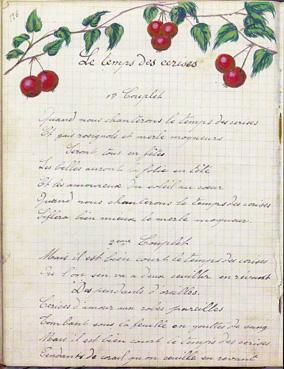 126
Le temps des cerises
1er Couplet
Quand nous chanterons le temps des cerises
Et gais rossignols et merle moqueurs
Seront tous en fêtes
Les belles auront la folie en tête
Et les amoureux du soleil au cœur
Quand nous chanterons le temps des cerises
Sifflera bien mieux le merle moqueur
2eme Couplet
Mais il est bien court le temps des cerises
Où l'on s'en va à deux cueillir en rêvant
Des pendants d'oreilles.
Cerises d'amour aux robes pareilles
Tombant sous la feuille en gouttes de sang
Mais il est bien court le temps des cerises
Pendants de corail qu'on cueille en rêvant